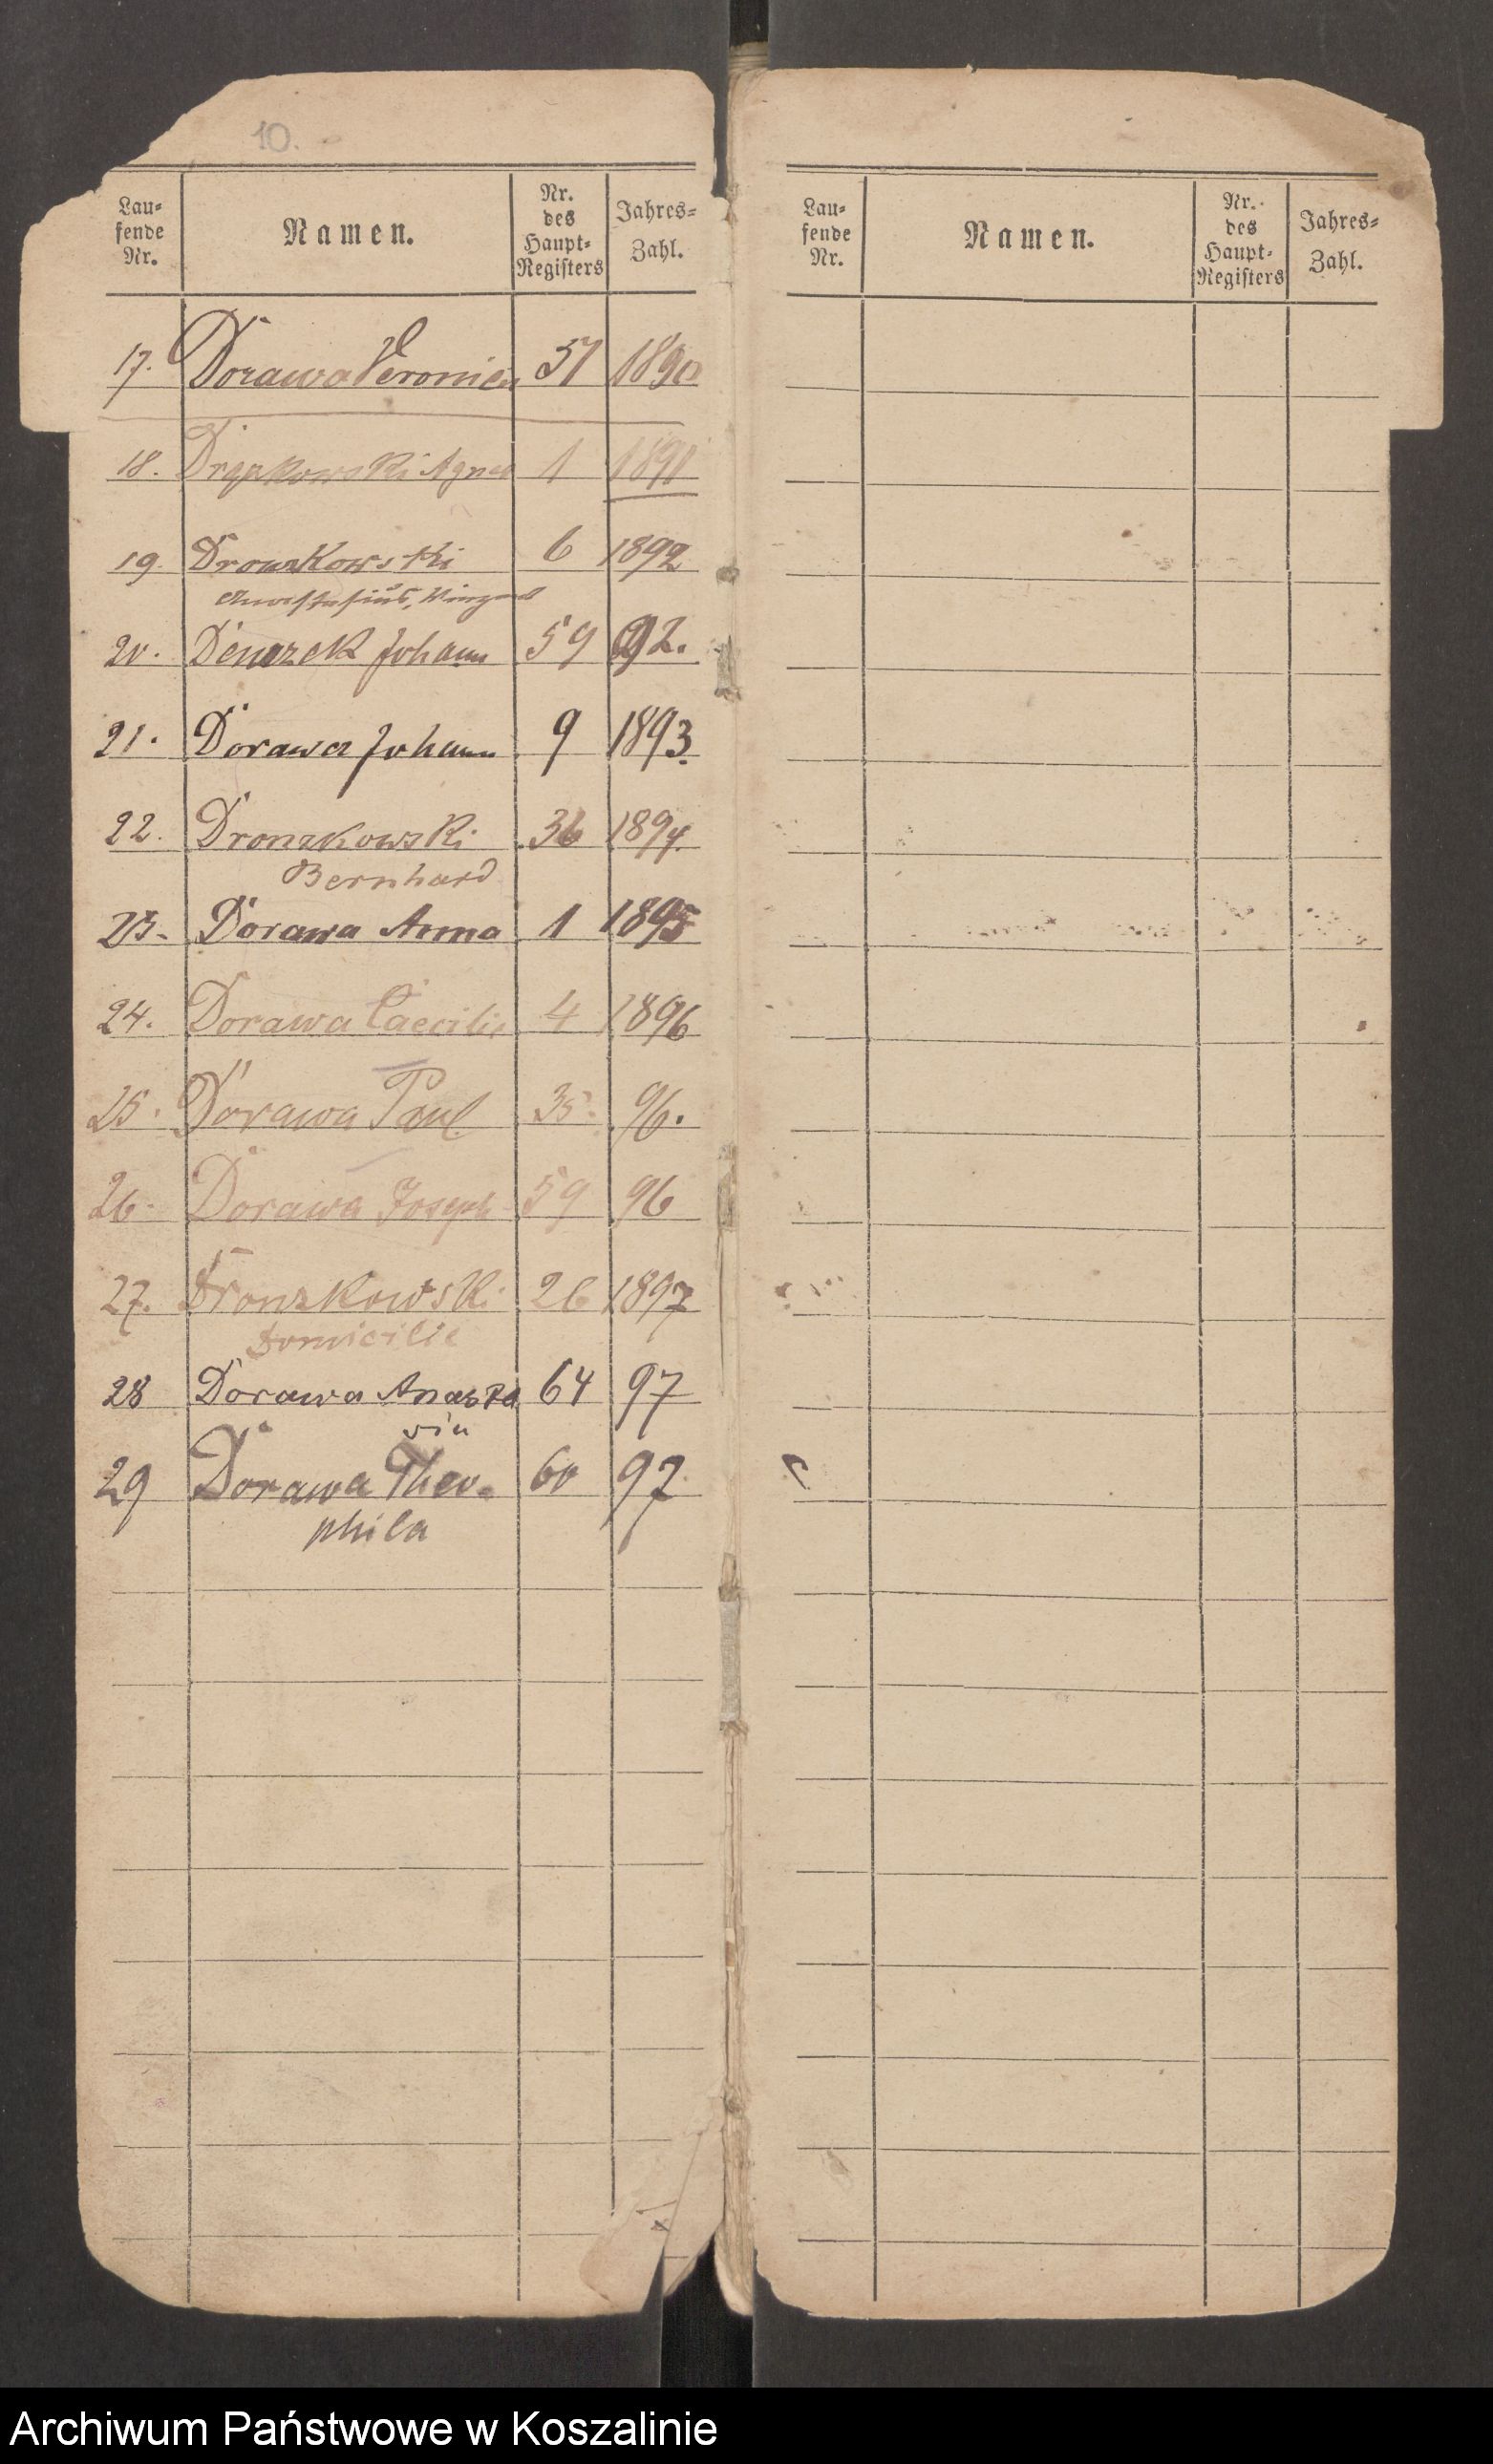 10.
Lau-
fende
Nr.
Namen.
Nr.
des
Haupt-
Registers
Jahres-
Zahl.
17. Dorawa Veronica 51 1890
18. Agnes 1 1891
19. Dronzkowski 6 1892
20. Johann 59 92.
21. Dorawa Johann 9 1893.
22. Dronzkowski 36 1894.
Bernhard
23. Dorawa Anna 1 1895
24. Dorawa Caecilie 4 1896
25. Dorawa Paul 35. 96.
26. Dorawa Joseph 59 96
27. Dronzkowski 26 1897
Domicilie
28 Dorawa Anasta 64 97
sia
29 Dorawa Theo- 60 97
phila
Lau-
fende
Nr.
Namen.
Nr.
des
Haupt-
Registers
Jahres-
Zahl.
Archiwum Państwowe w Koszalinie